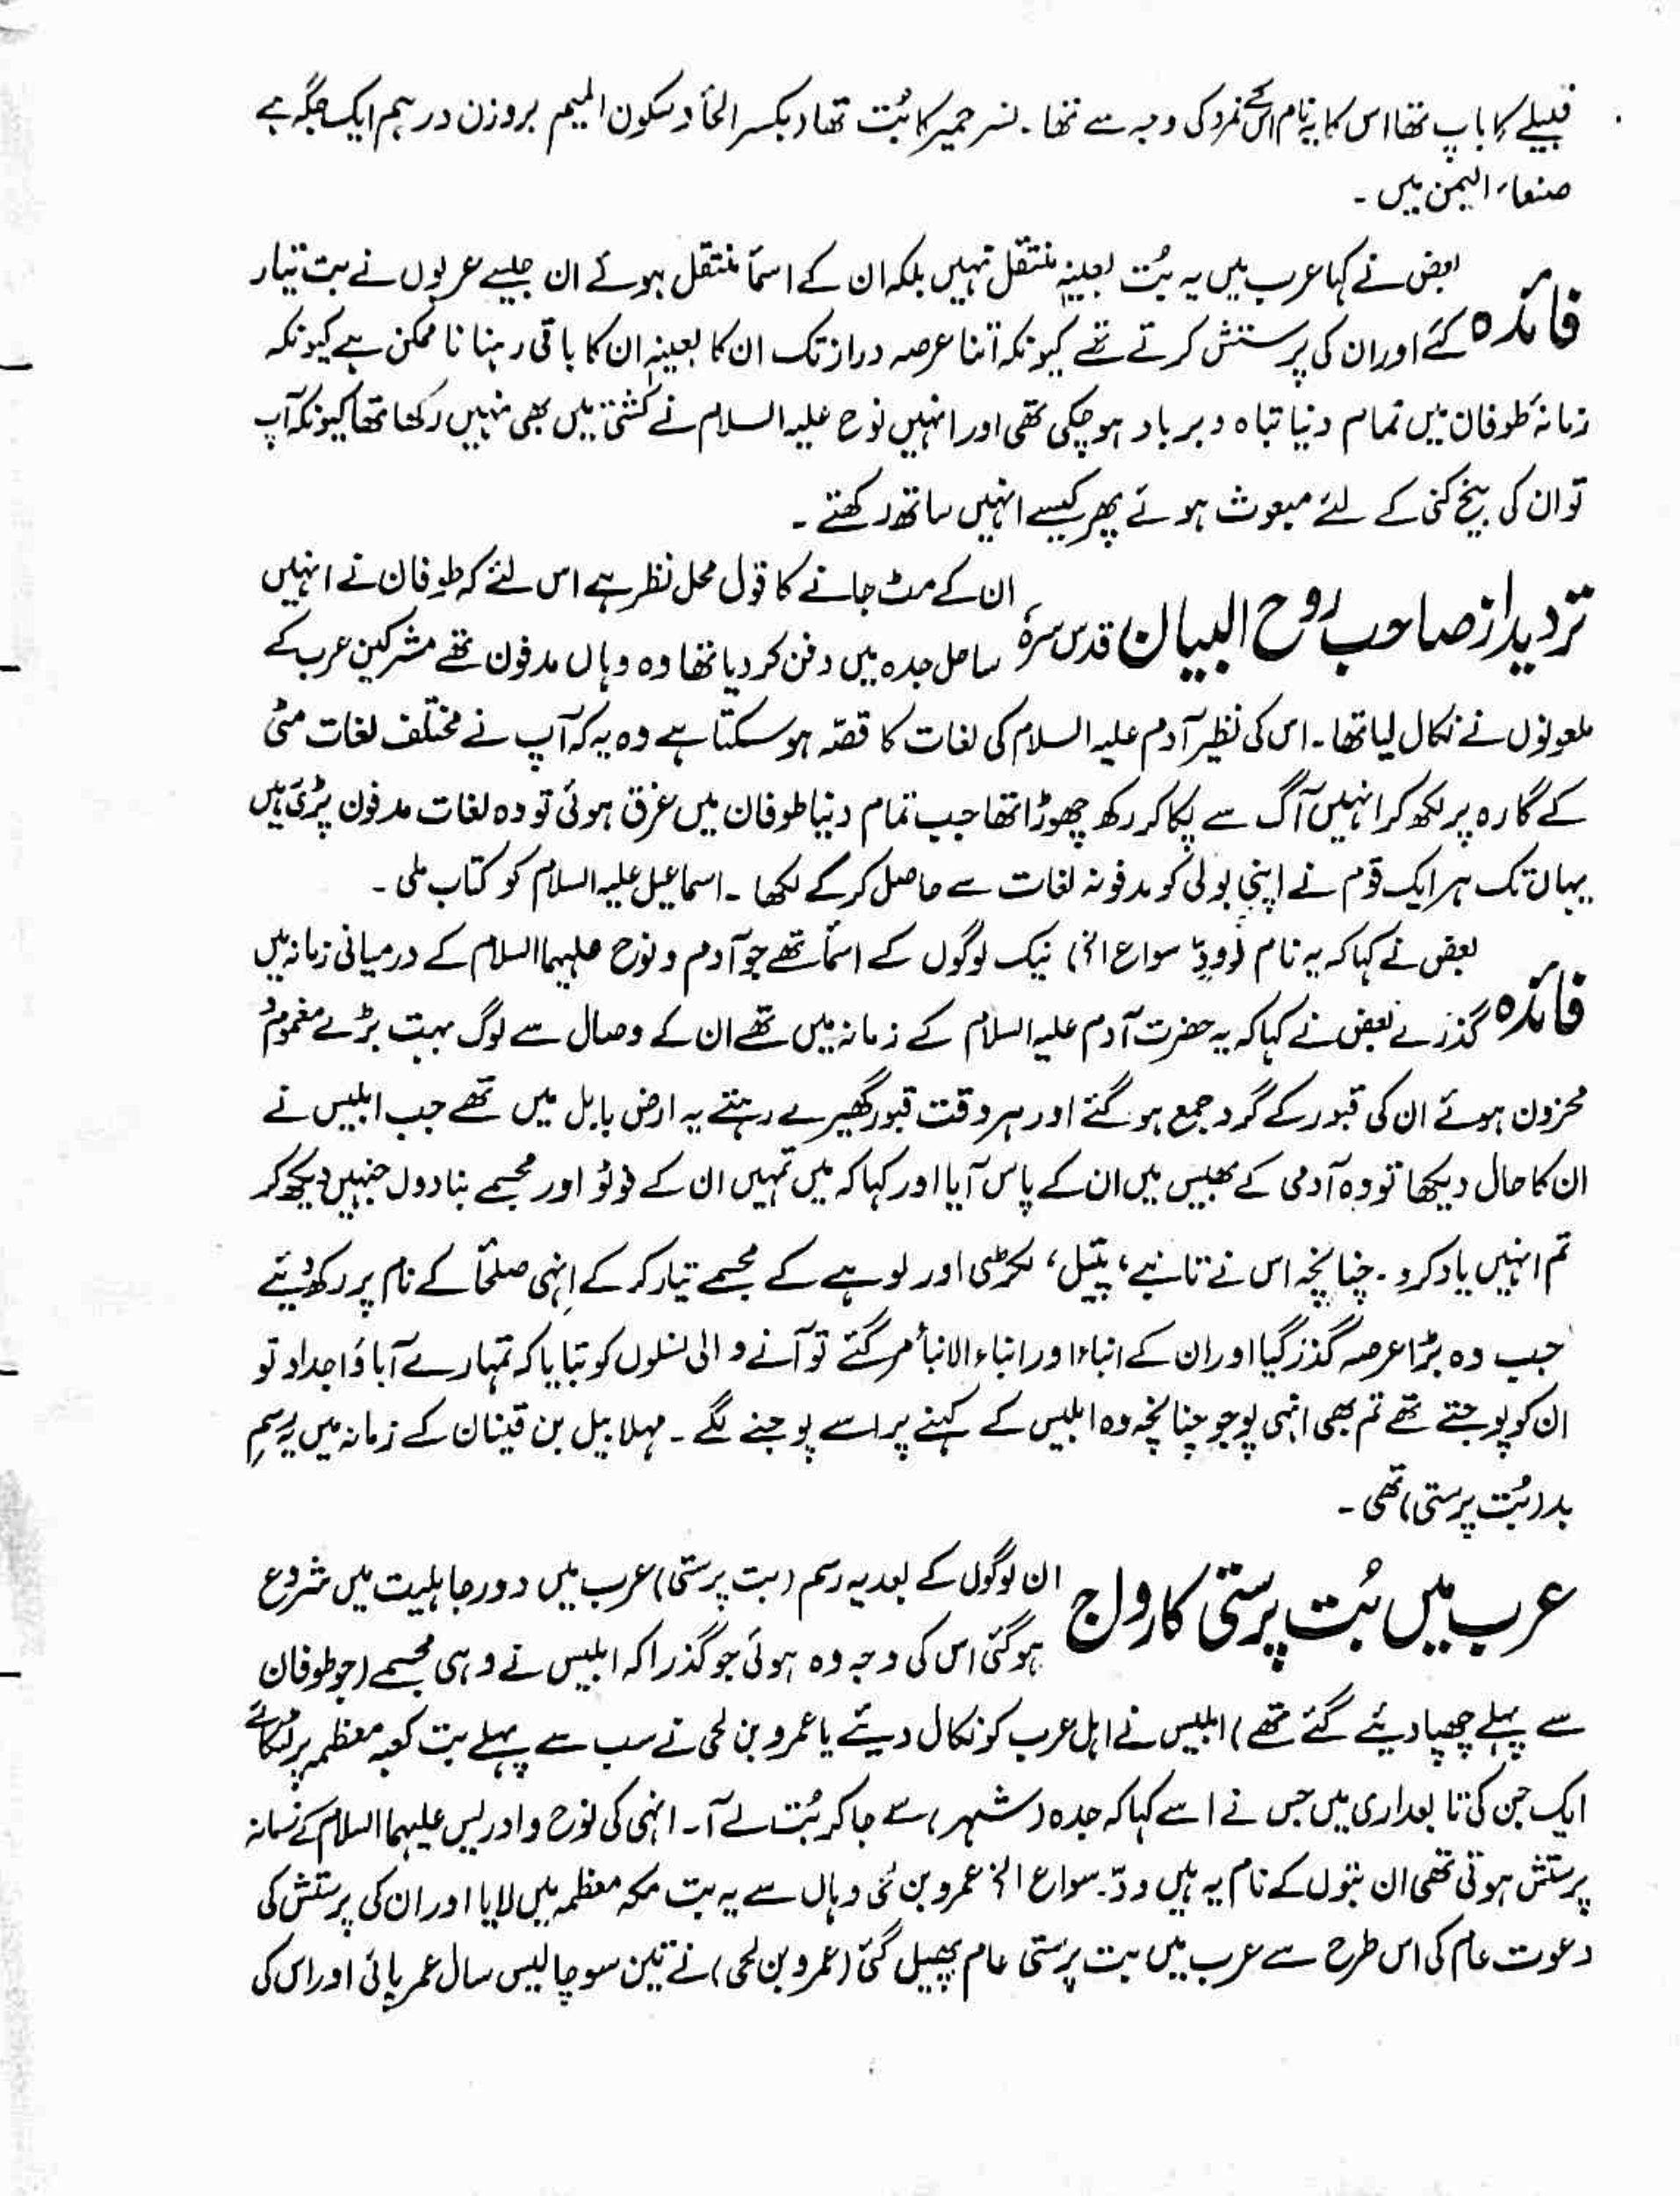 قبیلے کا باپ تھا اس کا یہ نام اس کے تمرد کی وجہ سے تھا۔ نسر حمیر کا بُت تھا دبکسر الحأ دسکون المیم بروزن درہم ایک جگہ ہے
صنعاء الیمن میں۔
فائدہ
بعض نے کہا عرب میں یہ بُت بعینہٖ منتقل نہیں بلکہ ان کے اسمأ منتقل ہوئے ان جیسے عربوں نے بت تیار
کئے اور ان کی پرستش کرتے تھے کیونکہ اتنا عرصہ دراز تک ان کا بعینہٖ ان کا باقی رہنا نا ممکن ہے کیونکہ
زمانۂ طوفان میں تمام دنیا تباہ و برباد ہو چکی تھی اور انہیں نوح علیہ السلام نے کشتی میں بھی نہیں رکھا تھا کیونکہ آپ
تو ان کی بیخ کنی کے لئے مبعوث ہوئے پھر کیسے انہیں ساتھ رکھتے۔
تردید از صاحب روح البیان قدس سرہٗ
ان کے مٹ جانے کا قول محل نظر ہے اس لئے کہ طوفان نے انہیں
ساحل جدہ میں دفن کر دیا تھا وہ وہاں مدفون تھے مشرکین عرب کے
ملعونوں نے نکال لیا تھا۔ اس کی نظیر آدم علیہ السلام کی لغات کا قصّہ ہو سکتا ہے وہ یہ کہ آپ نے مختلف لغات مٹی
کے گارہ پر لکھ کر انہیں آگ سے پکا کر رکھ چھوڑا تھا جب تمام دنیا طوفان میں غرق ہوئی تو وہ لغات مدفون پڑی ہیں
یہاں تک ہر ایک قوم نے اپنی بولی کو مدفونہ لغات سے حاصل کر کے لکھا۔ اسماعیل علیہ السلام کو کتاب ملی۔
فائدہ
بعض نے کہا کہ یہ نام (وودّ سواع الخ) نیک لوگوں کے اسمأ تھے جو آدم و نوح علیہما السلام کے درمیانی زمانہ میں
گذرے بعض نے کہا کہ یہ حضرت آدم علیہ السلام کے زمانہ میں تھے ان کے وصال سے لوگ بہت بڑے مغموم و
محزون ہوئے ان کی قبور کے گرد جمع ہو گئے اور ہر وقت قبور گھیرے رہتے یہ ارض بابل میں تھے جب ابلیس نے
ان کا حال دیکھا تو وہ آدمی کے بھیس میں ان کے پاس آیا اور کہا کہ میں تمہیں ان کے فوٹو اور مجسمے بنا دوں جنہیں دیکھ کر
تم انہیں یاد کرو۔ چنانچہ اس نے تانبے، پیتل، لکڑی اور لوہے کے مجسمے تیار کر کے انہی صلحأ کے نام پر رکھ دیئے
جب وہ بڑا عرصہ گذر گیا اور ان کے ابناء اور ابناء الابنأ مر گئے تو آنے والی نسلوں کو بتایا کہ تمہارے آباؤ اجداد تو
ان کو پوجتے تھے تم بھی انہی پوجو چنانچہ وہ ابلیس کے کہنے پر اسے پوجنے لگے۔ مہلابیل بن قینان کے زمانہ میں یہ رسم
بد (بُت پرستی) تھی۔
عرب میں بُت پرستی کا رواج
ان لوگوں کے بعد یہ رسم (بت پرستی) عرب میں دور جاہلیت میں شروع
ہو گئی اس کی وجہ وہ ہوئی جو گذرا کہ ابلیس نے وہی مجسمے (جو طوفان
سے پہلے چھپا دیئے گئے تھے) ابلیس نے اہل عرب کو نکال دیئے یا عمرو بن لحی نے سب سے پہلے بت کعبہ معظمہ پر لٹکائے
ایک جن کی تابعداری میں جس نے اسے کہا کہ جدہ (شہر) سے جا کر بُت لے آ۔ انہی کی نوح و ادریس علیہما السلام کے زمانہ
پرستش ہوتی تھی ان بتوں کے نام یہ ہیں ودّ۔ سواع الخ عمرو بن لحی وہاں سے یہ بت مکہ معظمہ میں لایا اور ان کی پرستش کی
دعوت عام کی اس طرح سے عرب میں بت پرستی عام پھیل گئی (عمرو بن لحی) نے تین سو چالیس سال عمر پائی اور اس کی